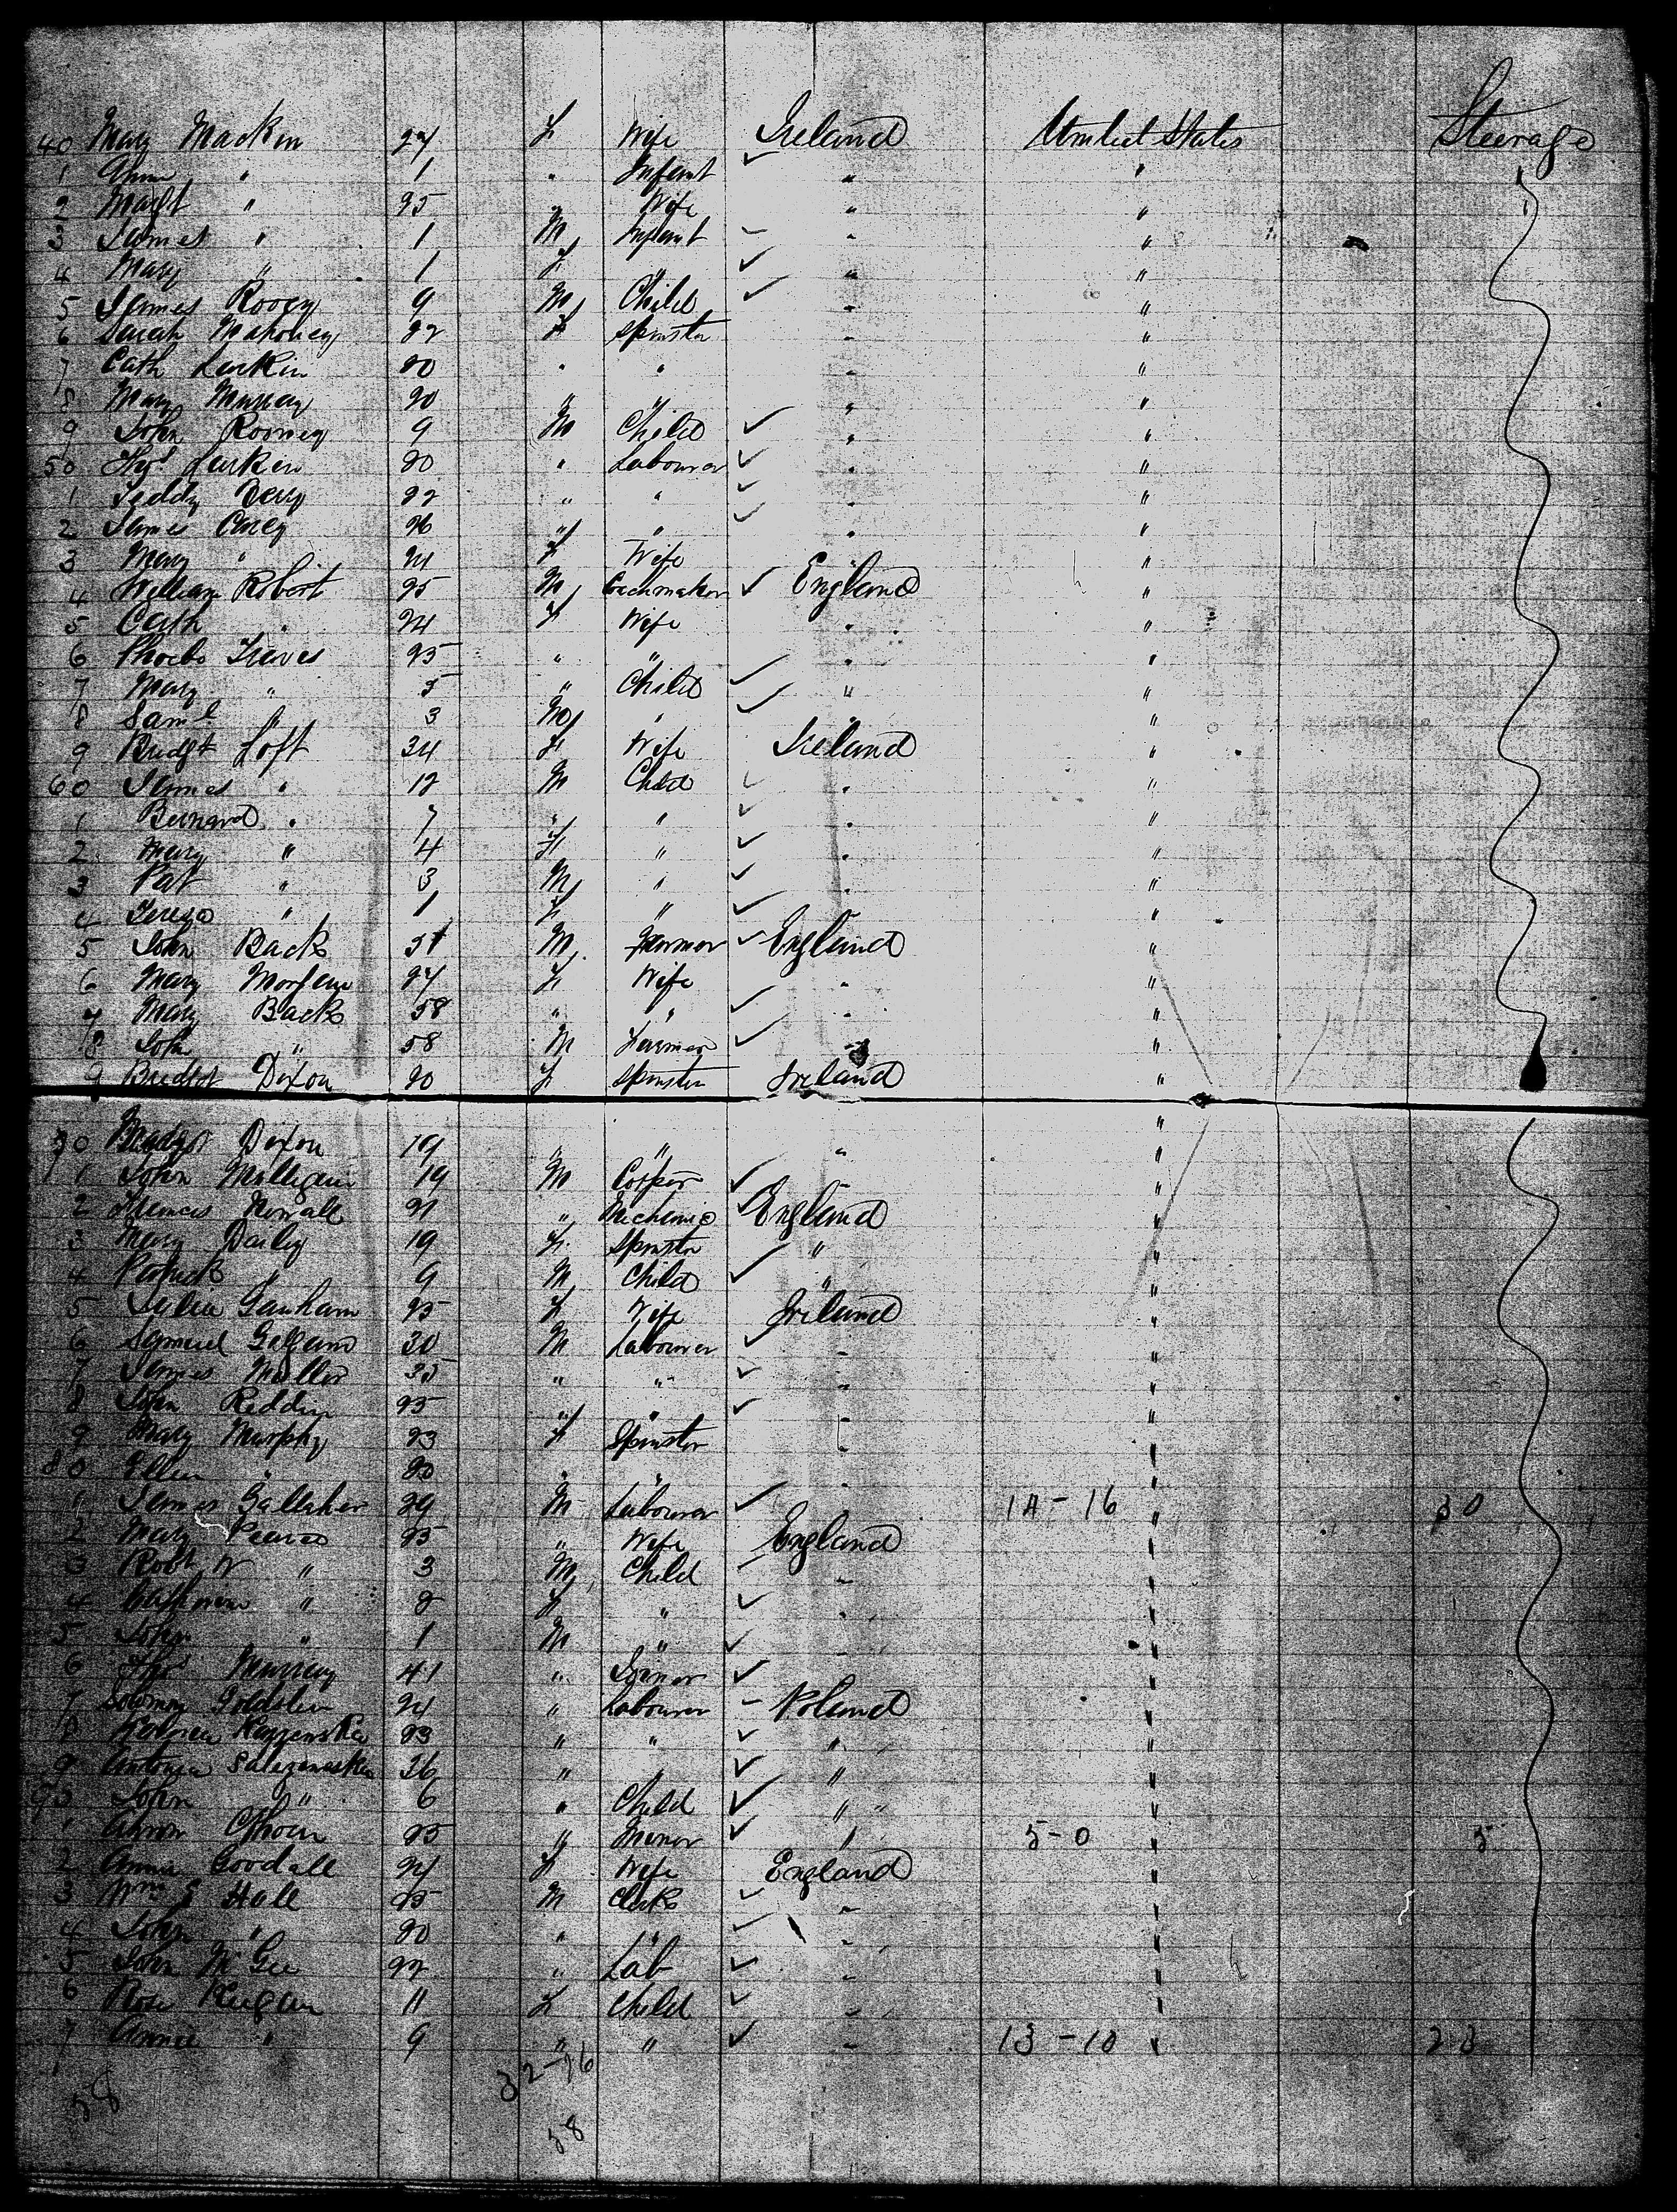 40 Mary Macken 27 F Wife Ireland United States Steerage
1 Anne " 1 " Infant " "
2 Margt " 25 " Wife " "
3 James " 1 M Infant " "
4 Mary " 1 F " " "
5 James 9 M Child " "
6 Sarah Mahoney 22 F Spinster " "
7 Cath Larkin 20 " " " "
8 Mary Murray 20 " " " "
9 John Rooney 9 M Child " "
50 Larken 20 " Labourer " "
1 Teddy 22 " " " "
2 James Carey 26 " " " "
3 Mary " 24 F Wife " "
4 William Robert 25 M Coachmaker England "
5 Cath " 24 F Wife " "
6 Phoebe 25 " " " "
7 Mary " 5 " Child " "
8 Saml " 3 M " " "
9 Bridgt Loft 34 F Wife Ireland "
60 James " 12 M Child " "
1 Bernard " 7 " " " "
2 Mary " 4 F " " "
3 Pat " 3 M " " "
4 Teresa " 1 F " " "
5 John Back 31 M Farmer England "
6 Mary Morgan 27 F Wife " "
7 Mary Back 58 " " " "
8 John " 58 M Farmer " "
9 Bridget Dixon 20 F Spinster Ireland "
70 Dixon 19 " " " "
1 John Milligan 19 M Cooper " "
2 Francis 21 " Mechanic England "
3 Mary Daily 19 F Spinster " "
4 Patrick " 9 M Child " "
5 Julia 25 F Wife Ireland "
6 Samuel 30 M Labourer " "
7 James 35 " " " "
8 John Reddin 25 " " " "
9 Mary Murphy 23 F Spinster " "
80 Ellen " 20 " " " "
1 James Gallaher 29 M Labourer " 14-16 " 30
2 Mary Pearce 25 " Wife England "
3 Robt W " 3 M Child " "
4 Catherine " 2 F " " "
5 John " 1 M " " "
6 Thos Murray 41 " Joiner " "
7 24 " Labourer Poland "
8 23 " " " "
9 Antonia 26 " " " "
90 John " 6 " Child " "
1 25 " Miner " 5-0 " 5
2 Annie Goodall 24 F Wife England "
3 Wm S Hall 25 M Clerk " "
4 John " 20 " " " "
5 John McGee 22 " Lab " "
6 Rose Keegan 11 F Child " "
7 Annie " 9 " " " 13-10 " 23
58 32-26
58